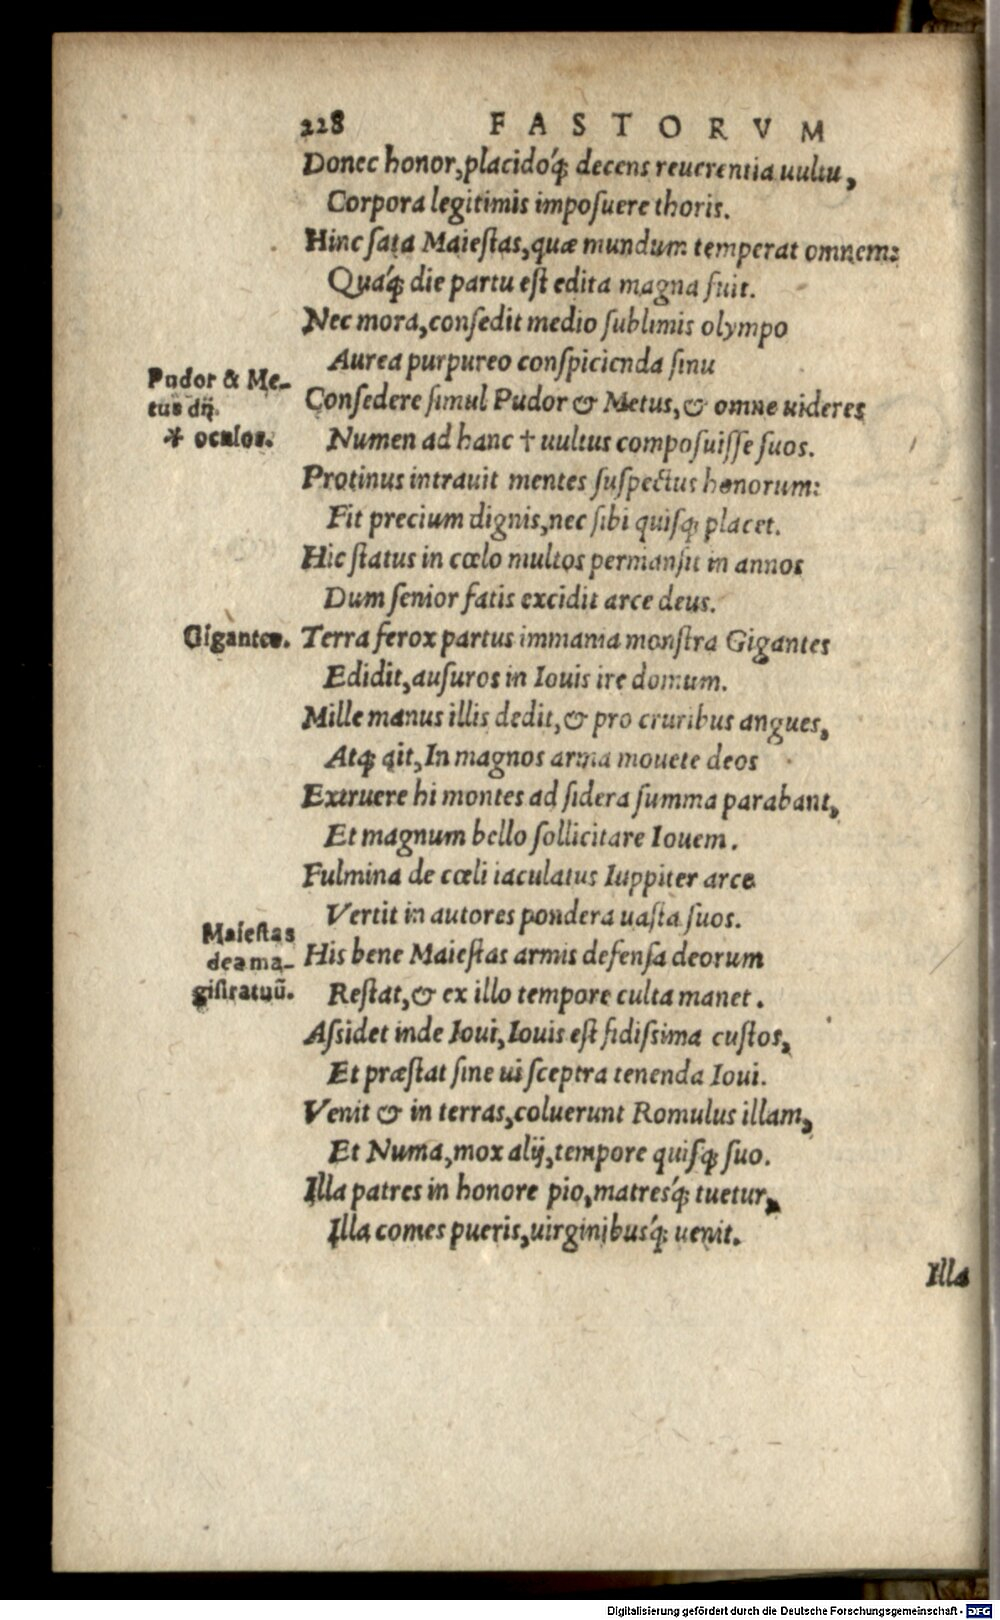 228 FASTORVM
Donec honor, placidóq; decens reuerentia uultu,
Corpora legitimis imposuere thoris.
Hinc sata Maiestas, quæ mundum temperat omnem:
Quáq; die partu est edita magna fuit.
Nec mora, consedit medio sublimis olympo
Aurea purpureo conspicienda sinu
Pudor & Me-
tus dij.
* oculos.
Consedere simul Pudor & Metus, & omne uideres
Numen ad hanc † uultus composuisse suos.
Protinus intrauit mentes suspectus honorum:
Fit precium dignis, nec sibi quisq; placet.
Hic status in cœlo multos permansit in annos
Dum senior fatis excidit arce deus.
Gigantes.
Terra ferox partus immania monstra Gigantes
Edidit, ausuros in Iouis ire domum.
Mille manus illis dedit, & pro cruribus angues,
Atq; ait, In magnos arma mouete deos
Extruere hi montes ad sidera summa parabant,
Et magnum bello sollicitare Iouem.
Fulmina de cœli iaculatus Iuppiter arce
Vertit in autores pondera uasta suos.
Maiestas
dea ma-
gistratuũ.
His bene Maiestas armis defensa deorum
Restat, & ex illo tempore culta manet.
Assidet inde Ioui, Iouis est fidissima custos,
Et præstat sine ui sceptra tenenda Ioui.
Venit & in terras, coluerunt Romulus illam,
Et Numa, mox alij, tempore quisq; suo.
Illa patres in honore pio, matresq́; tuetur,
Illa comes pueris, uirginibusq́; uenit.
Illa
Digitalisierung gefördert durch die Deutsche Forschungsgemeinschaft - DFG